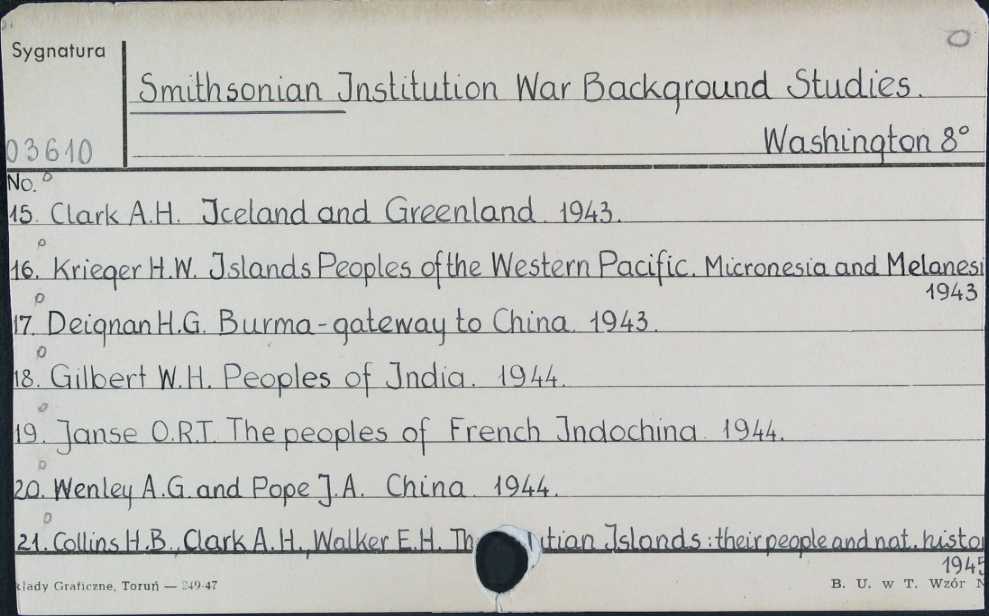 Sygnatura
Smithsonian Institution War Background Studies.
03610
Washington 8°
No.
15. Clark A.H. Iceland and Greenland 1943.
16. Krieger H.W. Islands Peoples of the Western Pacific. Micronesia and Melanesi
1943
17. Deignan H.G. Burma - gateway to China. 1943.
18. Gilbert W.H. Peoples of India. 1944.
19. Janse O.R.T. The peoples of French Indochina. 1944.
20. Wenley A.G. and Pope J.A. China 1944.
21. Collins H.B., Clark A.H., Walker E.H. Th utian Islands: their people and nat. histo
1945
kłady Graficzne, Toruń — 249-47
B. U. w T. Wzór N